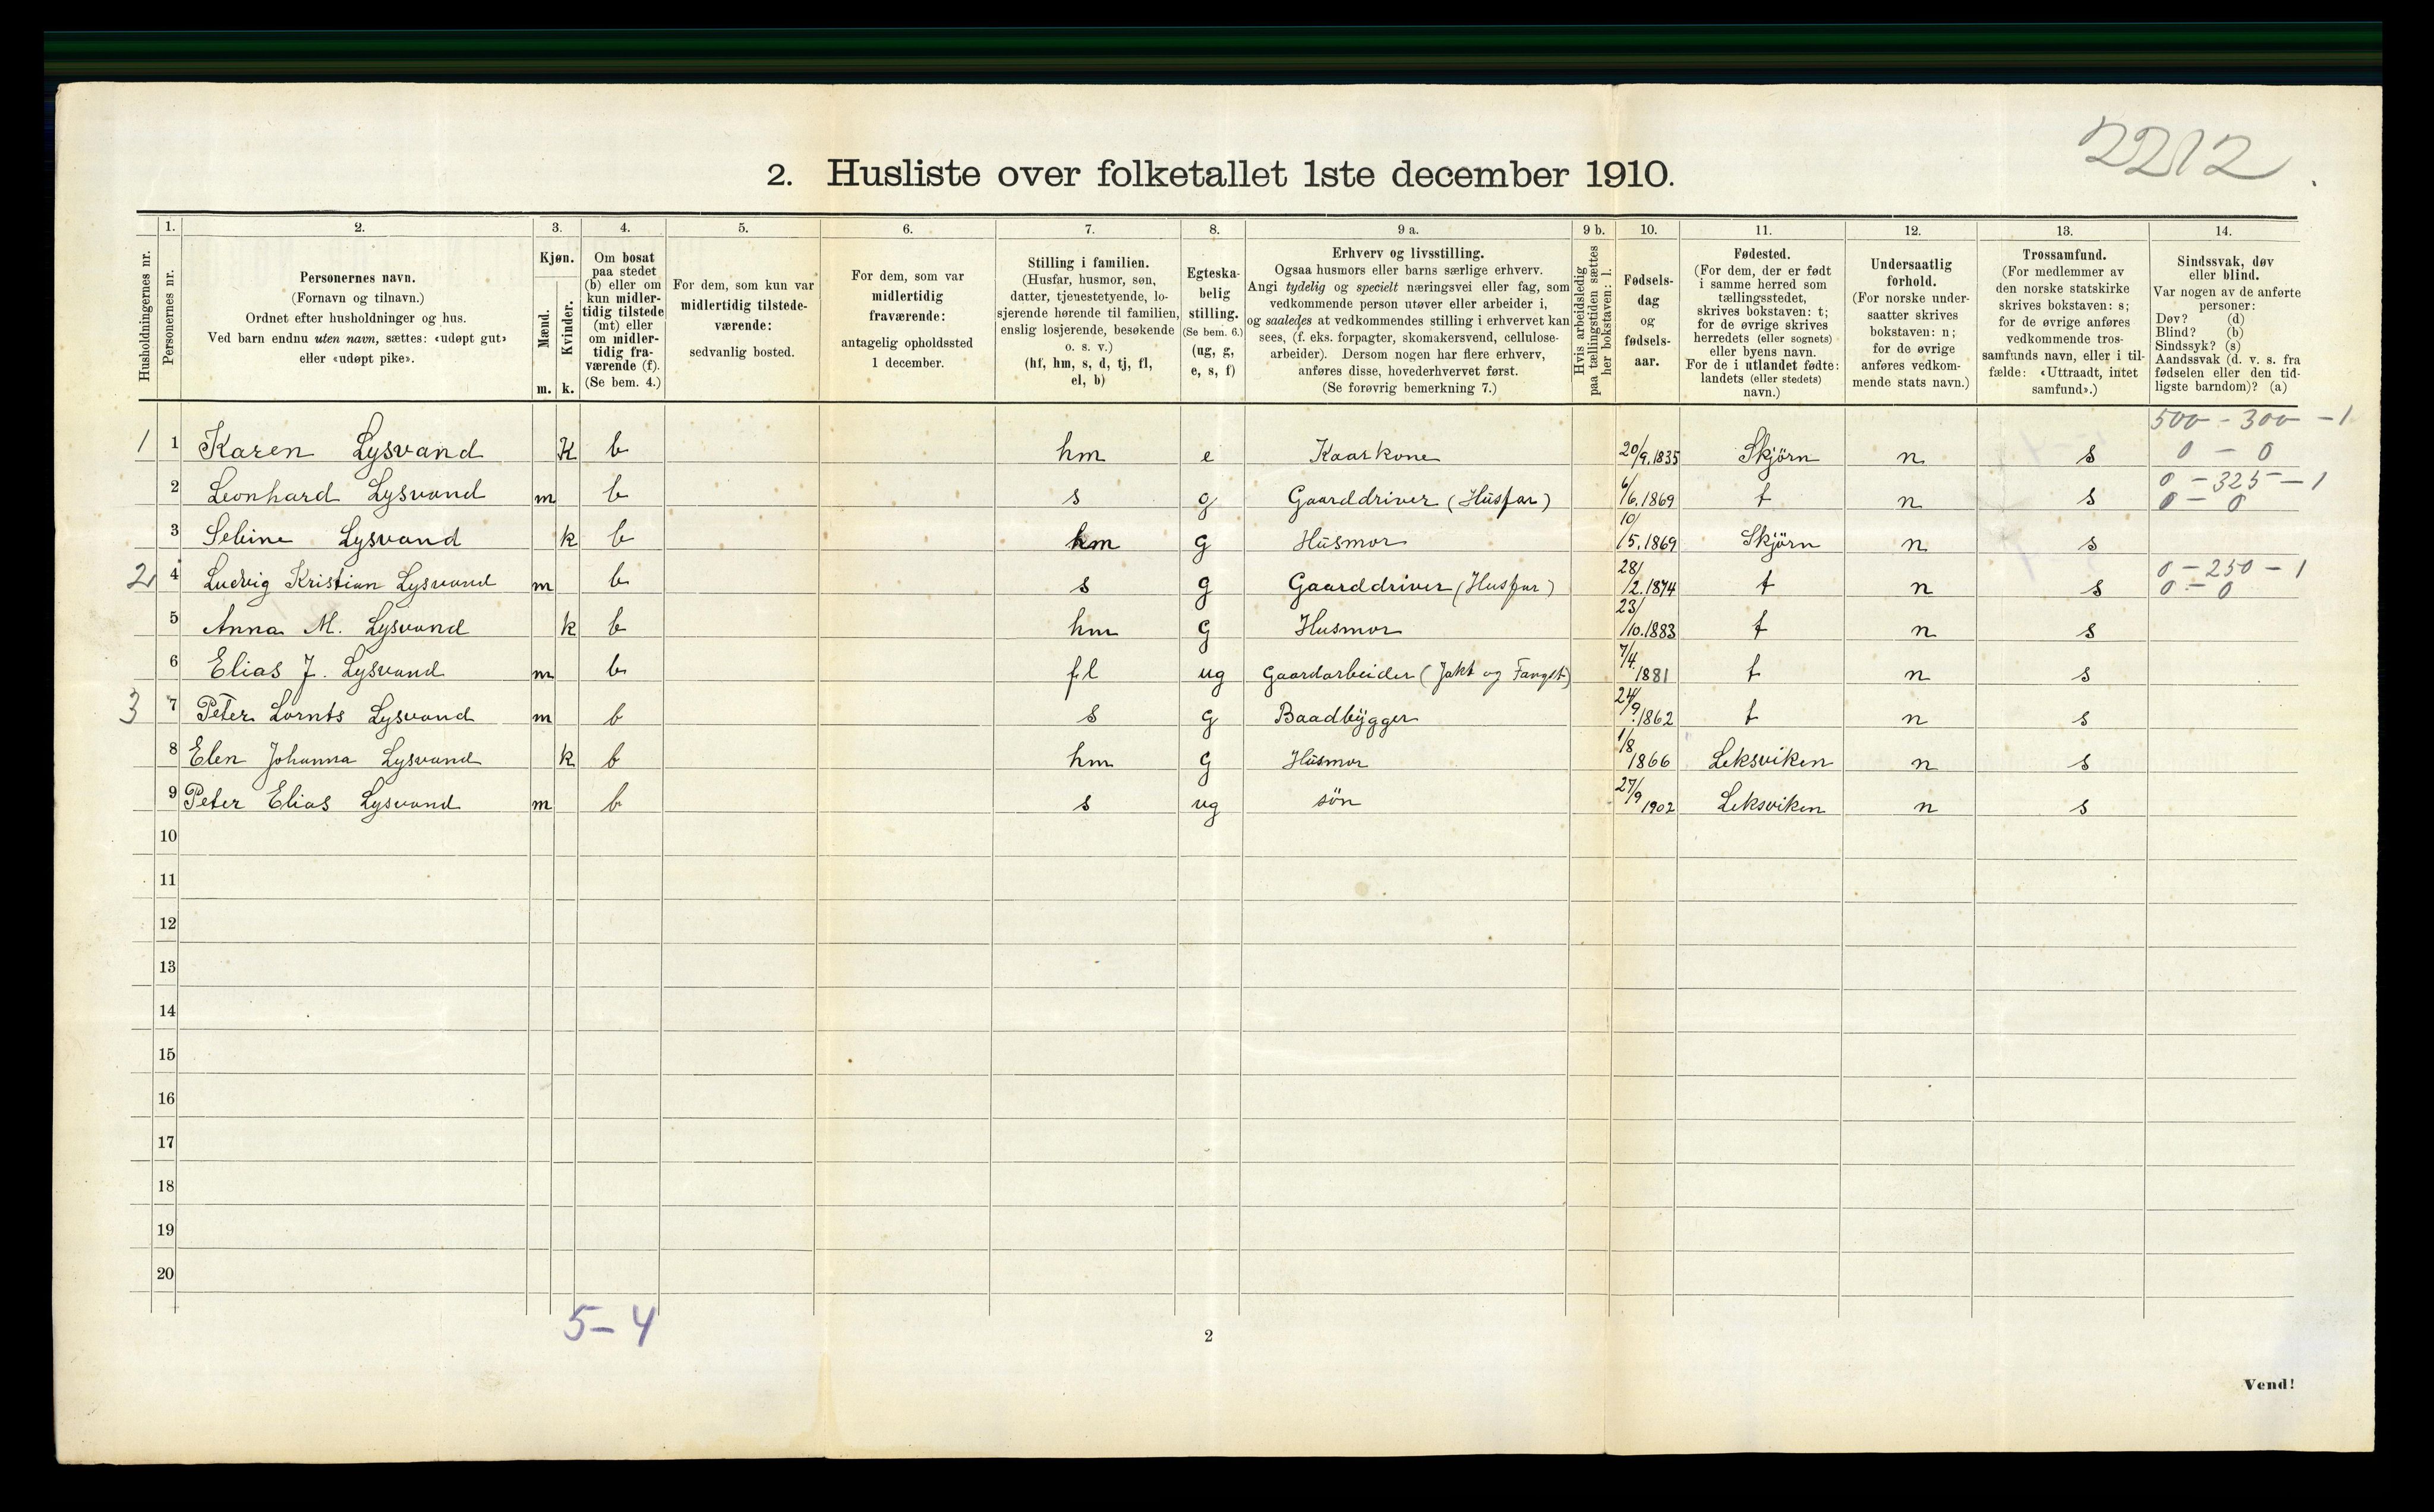 2212
2. Husliste over folketallet 1ste december 1910.
Husholdningernes nr.
1.
Personernes nr.
2.
Personernes navn.
(Fornavn og tilnavn.)
Ordnet efter husholdninger og hus.
Ved barn endnu uten navn, sættes: «udøpt gut»
eller «udøpt pike».
3.
Kjøn.
Mænd.
Kvinder.
m. k.
4.
Om bosat
paa stedet
(b) eller om
kun midler-
tidig tilstede
(mt) eller
om midler-
tidig fra-
værende (f).
(Se bem. 4.)
5.
For dem, som kun var
midlertidig tilstede-
værende:
sedvanlig bosted.
6.
For dem, som var
midlertidig
fraværende:
antagelig opholdssted
1 december.
7.
Stilling i familien.
(Husfar, husmor, søn,
datter, tjenestetyende, lo-
sjerende hørende til familien,
enslig losjerende, besøkende
o. s. v.)
(hf, hm, s, d, tj, fl,
el, b)
8.
Egteska-
belig
stilling.
(Se bem. 6.)
(ug, g,
e, s, f)
9 a.
Erhverv og livsstilling.
Ogsaa husmors eller barns særlige erhverv.
Angi tydelig og specielt næringsvei eller fag, som
vedkommende person utøver eller arbeider i,
og saaledes at vedkommendes stilling i erhvervet kan
sees, (f. eks. forpagter, skomakersvend, cellulose-
arbeider). Dersom nogen har flere erhverv,
anføres disse, hovederhvervet først.
(Se forøvrig bemerkning 7.)
9 b.
Hvis arbeidsledig
paa tællingstiden sættes
her bokstaven: l.
10.
Fødsels-
dag
og
fødsels-
aar.
11.
Fødested.
(For dem, der er født
i samme herred som
tællingsstedet,
skrives bokstaven: t;
for de øvrige skrives
herredets (eller sognets)
eller byens navn.
For de i utlandet fødte:
landets (eller stedets)
navn.)
12.
Undersaatlig
forhold.
(For norske under-
saatter skrives
bokstaven: n;
for de øvrige
anføres vedkom-
mende stats navn.)
13.
Trossamfund.
(For medlemmer av
den norske statskirke
skrives bokstaven: s;
for de øvrige anføres
vedkommende tros-
samfunds navn, eller i til-
fælde: «Uttraadt, intet
samfund».)
14.
Sindssvak, døv
eller blind.
Var nogen av de anførte
personer:
Døv? (d)
Blind? (b)
Sindssyk? (s)
Aandssvak (d. v. s. fra
fødselen eller den tid-
ligste barndom)? (a)
500 - 300 - 1
1 1 Karen Lysvand K b hm e Kaarkone 20/9.1835 Skjörn n s 0 - 0
2 Leonhard Lysvand m b s g Gaarddriver (Husfar) 6/6.1869 t n s 0 - 325 - 1
0 - 0
3 Seline Lysvand k b hm g Husmor 10/5.1869 Skjörn n s
2 4 Ludvig Kristian Lysvand m b s g Gaarddriver (Husfar) 28/2.1874 t n s 0 - 250 - 1
0 - 0
5 Anna M. Lysvand k b hm g Husmor 23/10.1883 t n s
6 Elias J. Lysvand m b fl ug Gaardarbeider (Jakt og Fangst) 7/4.1881 t n s
3 7 Peter Lornts Lysvand m b s g Baadbygger 24/9.1862 t n s
8 Elen Johanna Lysvand k b hm g Husmor 1/8 1866 Leksviken n s
9 Peter Elias Lysvand m b s ug sön 27/9 1902 Leksviken n s
10
11
12
13
14
15
16
17
18
19
20
5 - 4
2
Vend!